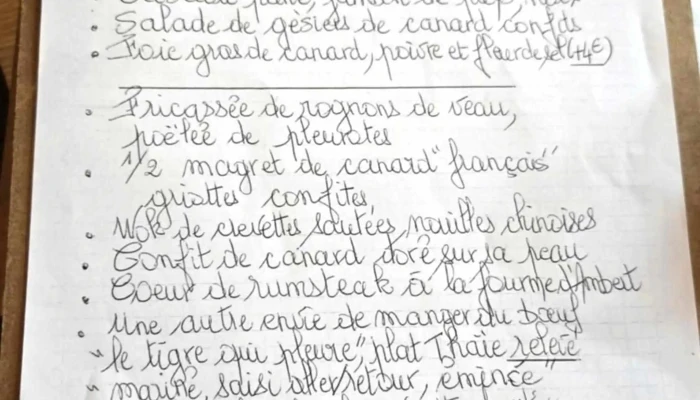 • Salade de gésiers de canard confits
• Foie gras de canard, poivre et fleur de sel (+4€)
• Fricassée de rognons de veau,
poëlée de pleurotes
• 1/2 magret de canard "français"
griottes confites
• Wok de crevettes sautées, nouilles chinoises
• Confit de canard doré sur sa peau
• Coeur de rumsteak à la fourme d'Ambert
• Une autre envie de manger du boeuf
"le tigre qui pleure", plat Thaïe relevé
"mariné, saisi aller/retour, émincé"